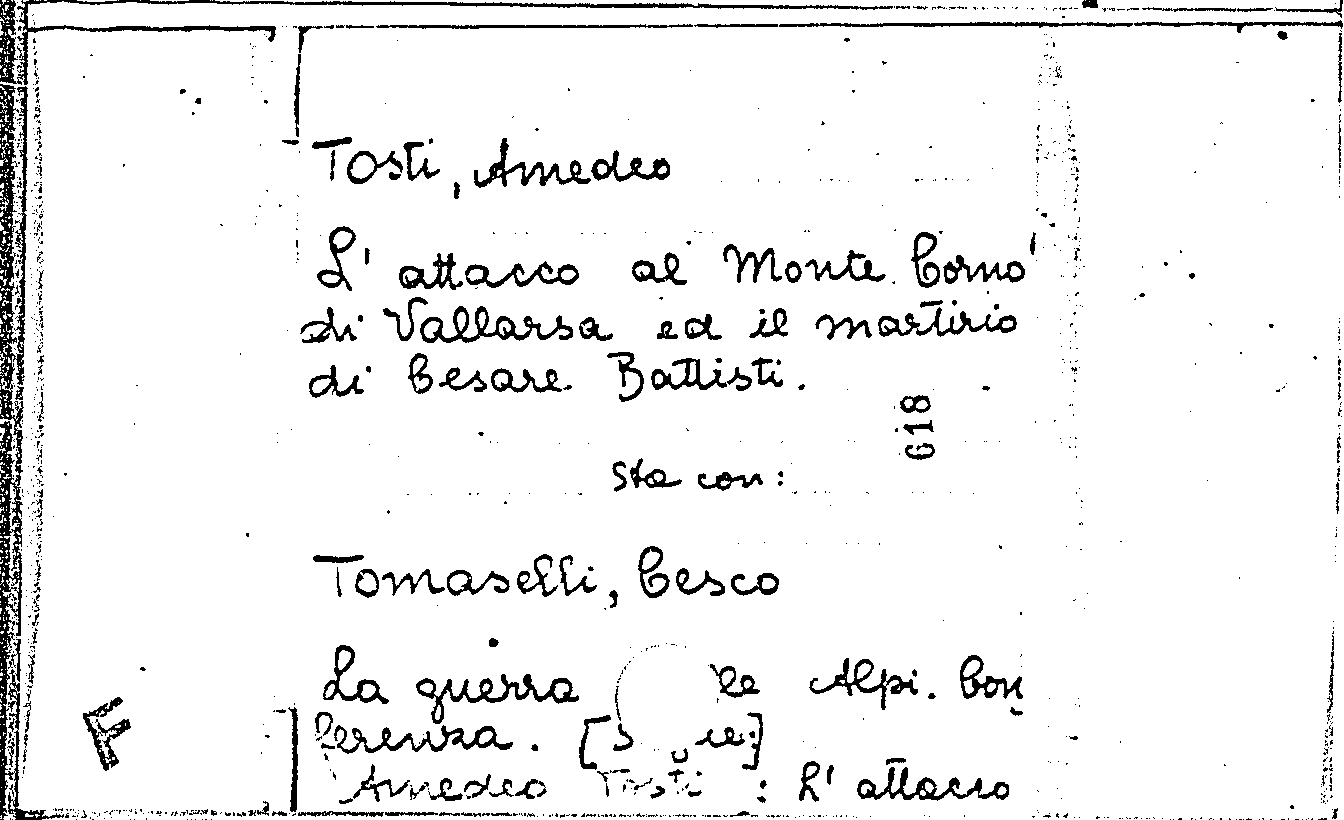 Tosti, Amedeo
L'attacco al Monte Corno
di Vallarsa ed il martirio
di Cesare Battisti.
618
Sta con:
Tomaselli, Cesco
La guerra Alpi. Con
ferenza.
Amedeo Tosti: L'attacco
F